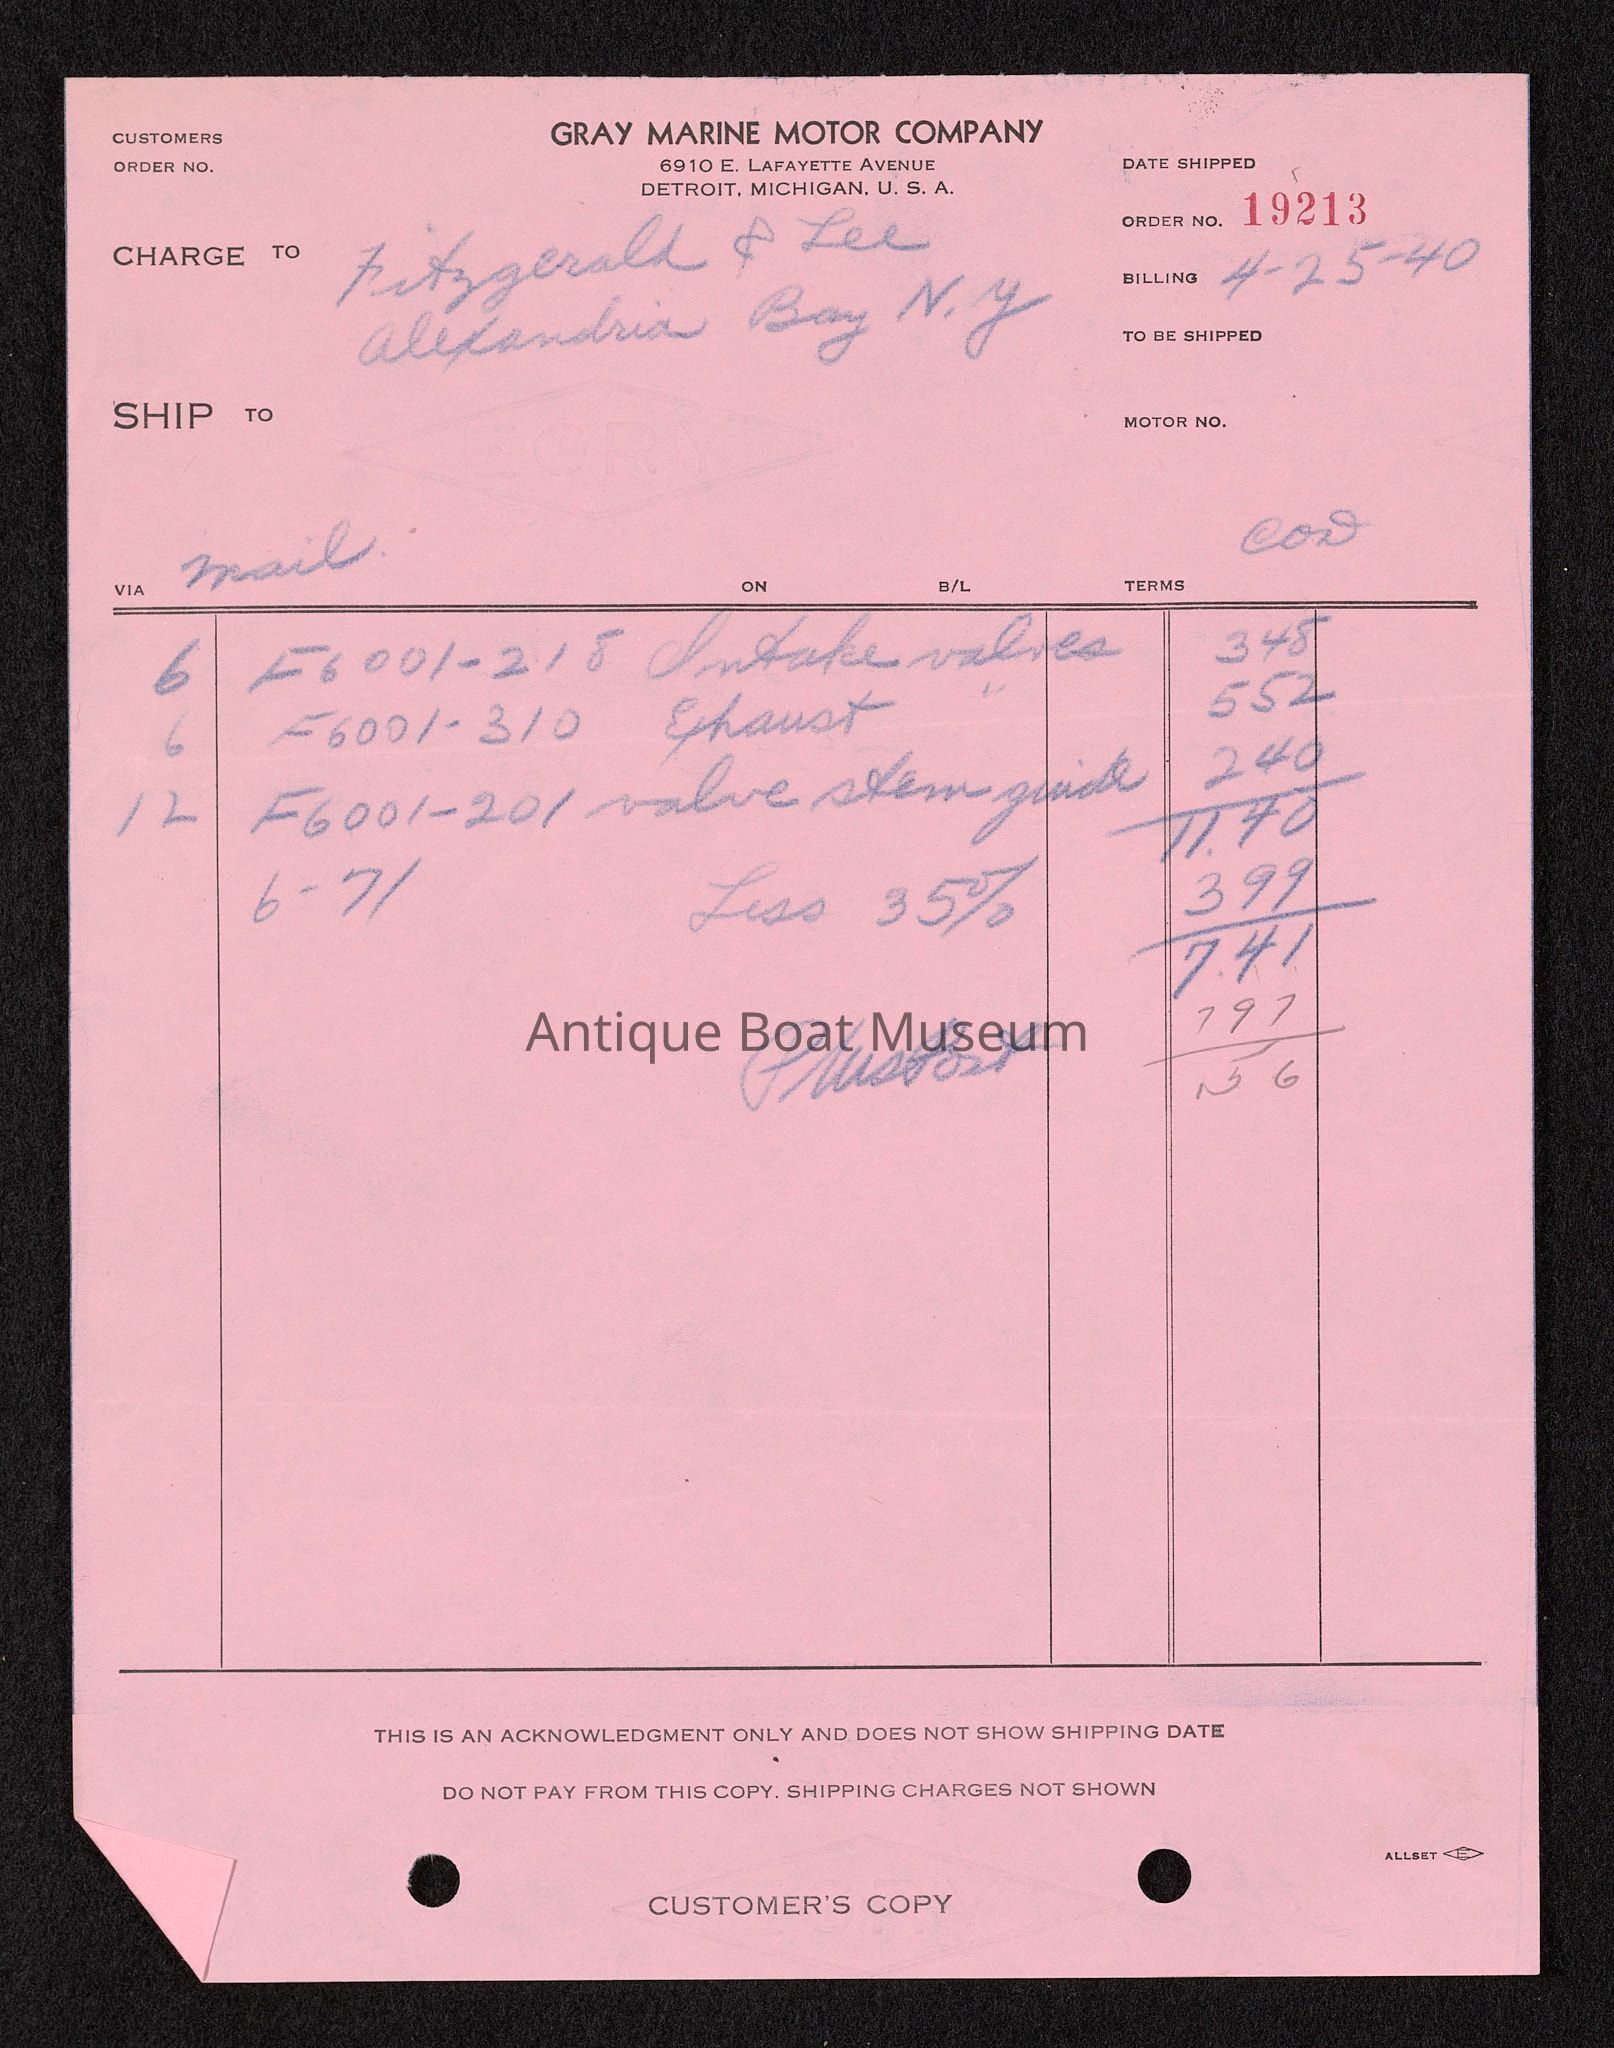 CUSTOMERS
ORDER NO.
GRAY MARINE MOTOR COMPANY
6910 E. LAFAYETTE AVENUE
DETROIT, MICHIGAN, U. S. A.
DATE SHIPPED
ORDER NO. 19213
CHARGE TO Fitzgerald & Lee
Alexandria Bay N.Y
BILLING 4-25-40
TO BE SHIPPED
SHIP TO
MOTOR NO.
VIA mail. ON B/L TERMS COD
6 F6001-218 Intake valves 348
6 F6001-310 Exhaust " 552
12 F6001-201 valve stem guide 240
11.40
6-71 Less 35% 399
7.41
797
56
Antique Boat Museum
THIS IS AN ACKNOWLEDGMENT ONLY AND DOES NOT SHOW SHIPPING DATE
DO NOT PAY FROM THIS COPY. SHIPPING CHARGES NOT SHOWN
ALLSET E
CUSTOMER'S COPY